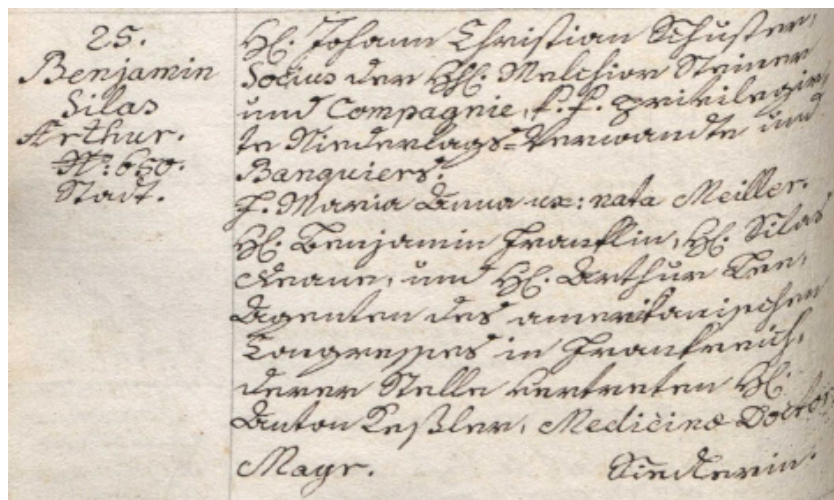 25.
Benjamin
Silas
Arthur.
N: 650.
Stadt.
H. Johann Christian Schuster,
Socius der HH. Melchior Steiner
und Compagnie, k. k. privilegir-
te Niederlags=Verwandte und
Banquiers.
F. Maria Anna ux: nata Meiller.
H. Benjamin Franklin, H. Silas
Deane, und H. Arthur Lee,
Agenten des amerikanischen
Congresses in Frankreich,
derer Stelle vertreten H.
Anton Keßler, Medicinæ Doctor
Mayr.